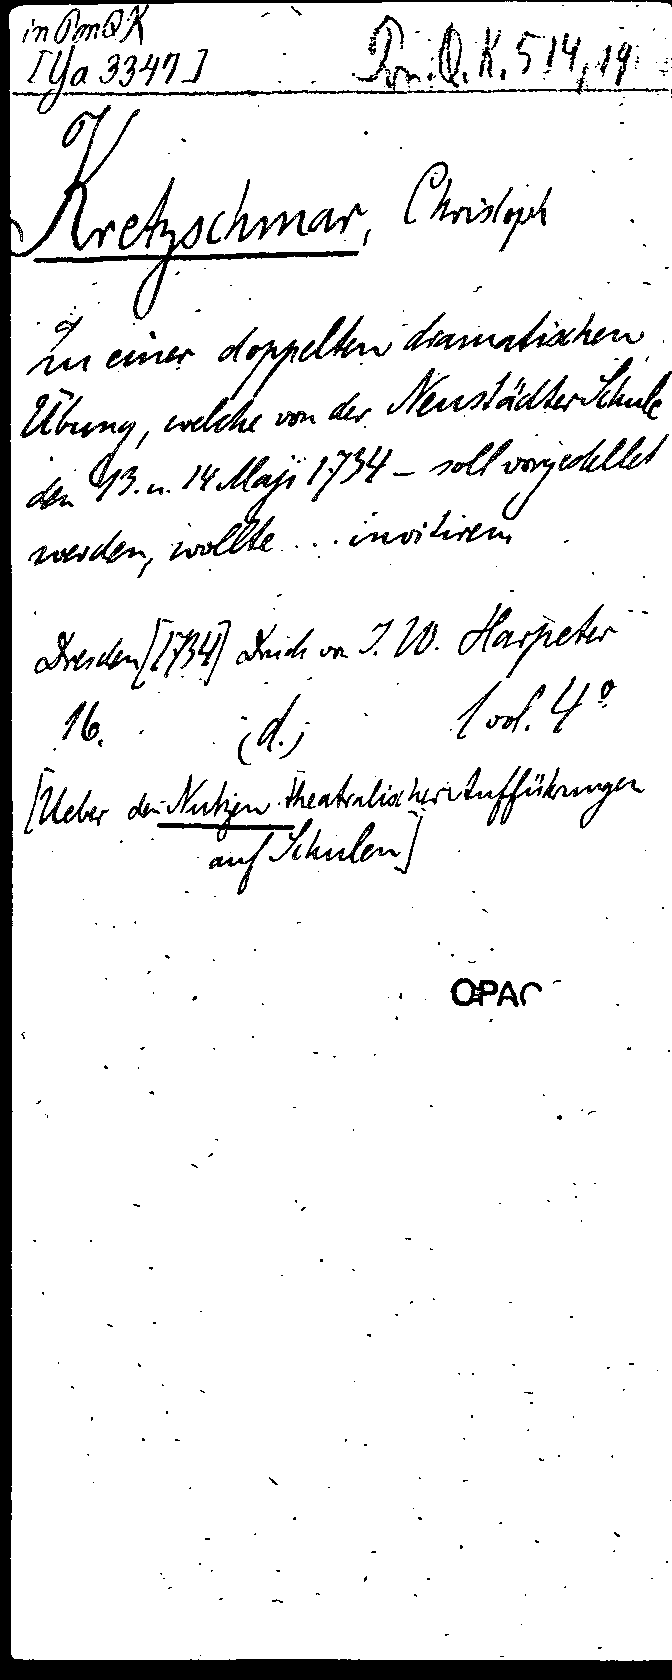 in Pon Q K
[Ya 3347] Pon. Q. K. 514, 19
Kretzschmar, Christoph
Zu einer doppelten dramatischen
Übung, welche von der Neustädter Schule
den 13. u. 14 Maji 1734 – soll vorgestellet
werden, wollte ... invitiren
Dresden [1734] Druck von J. W. Harpeter
16. (d.) 1 vol. 4º
[Ueber den Nutzen theatralischer Aufführungen
auf Schulen]
OPAC